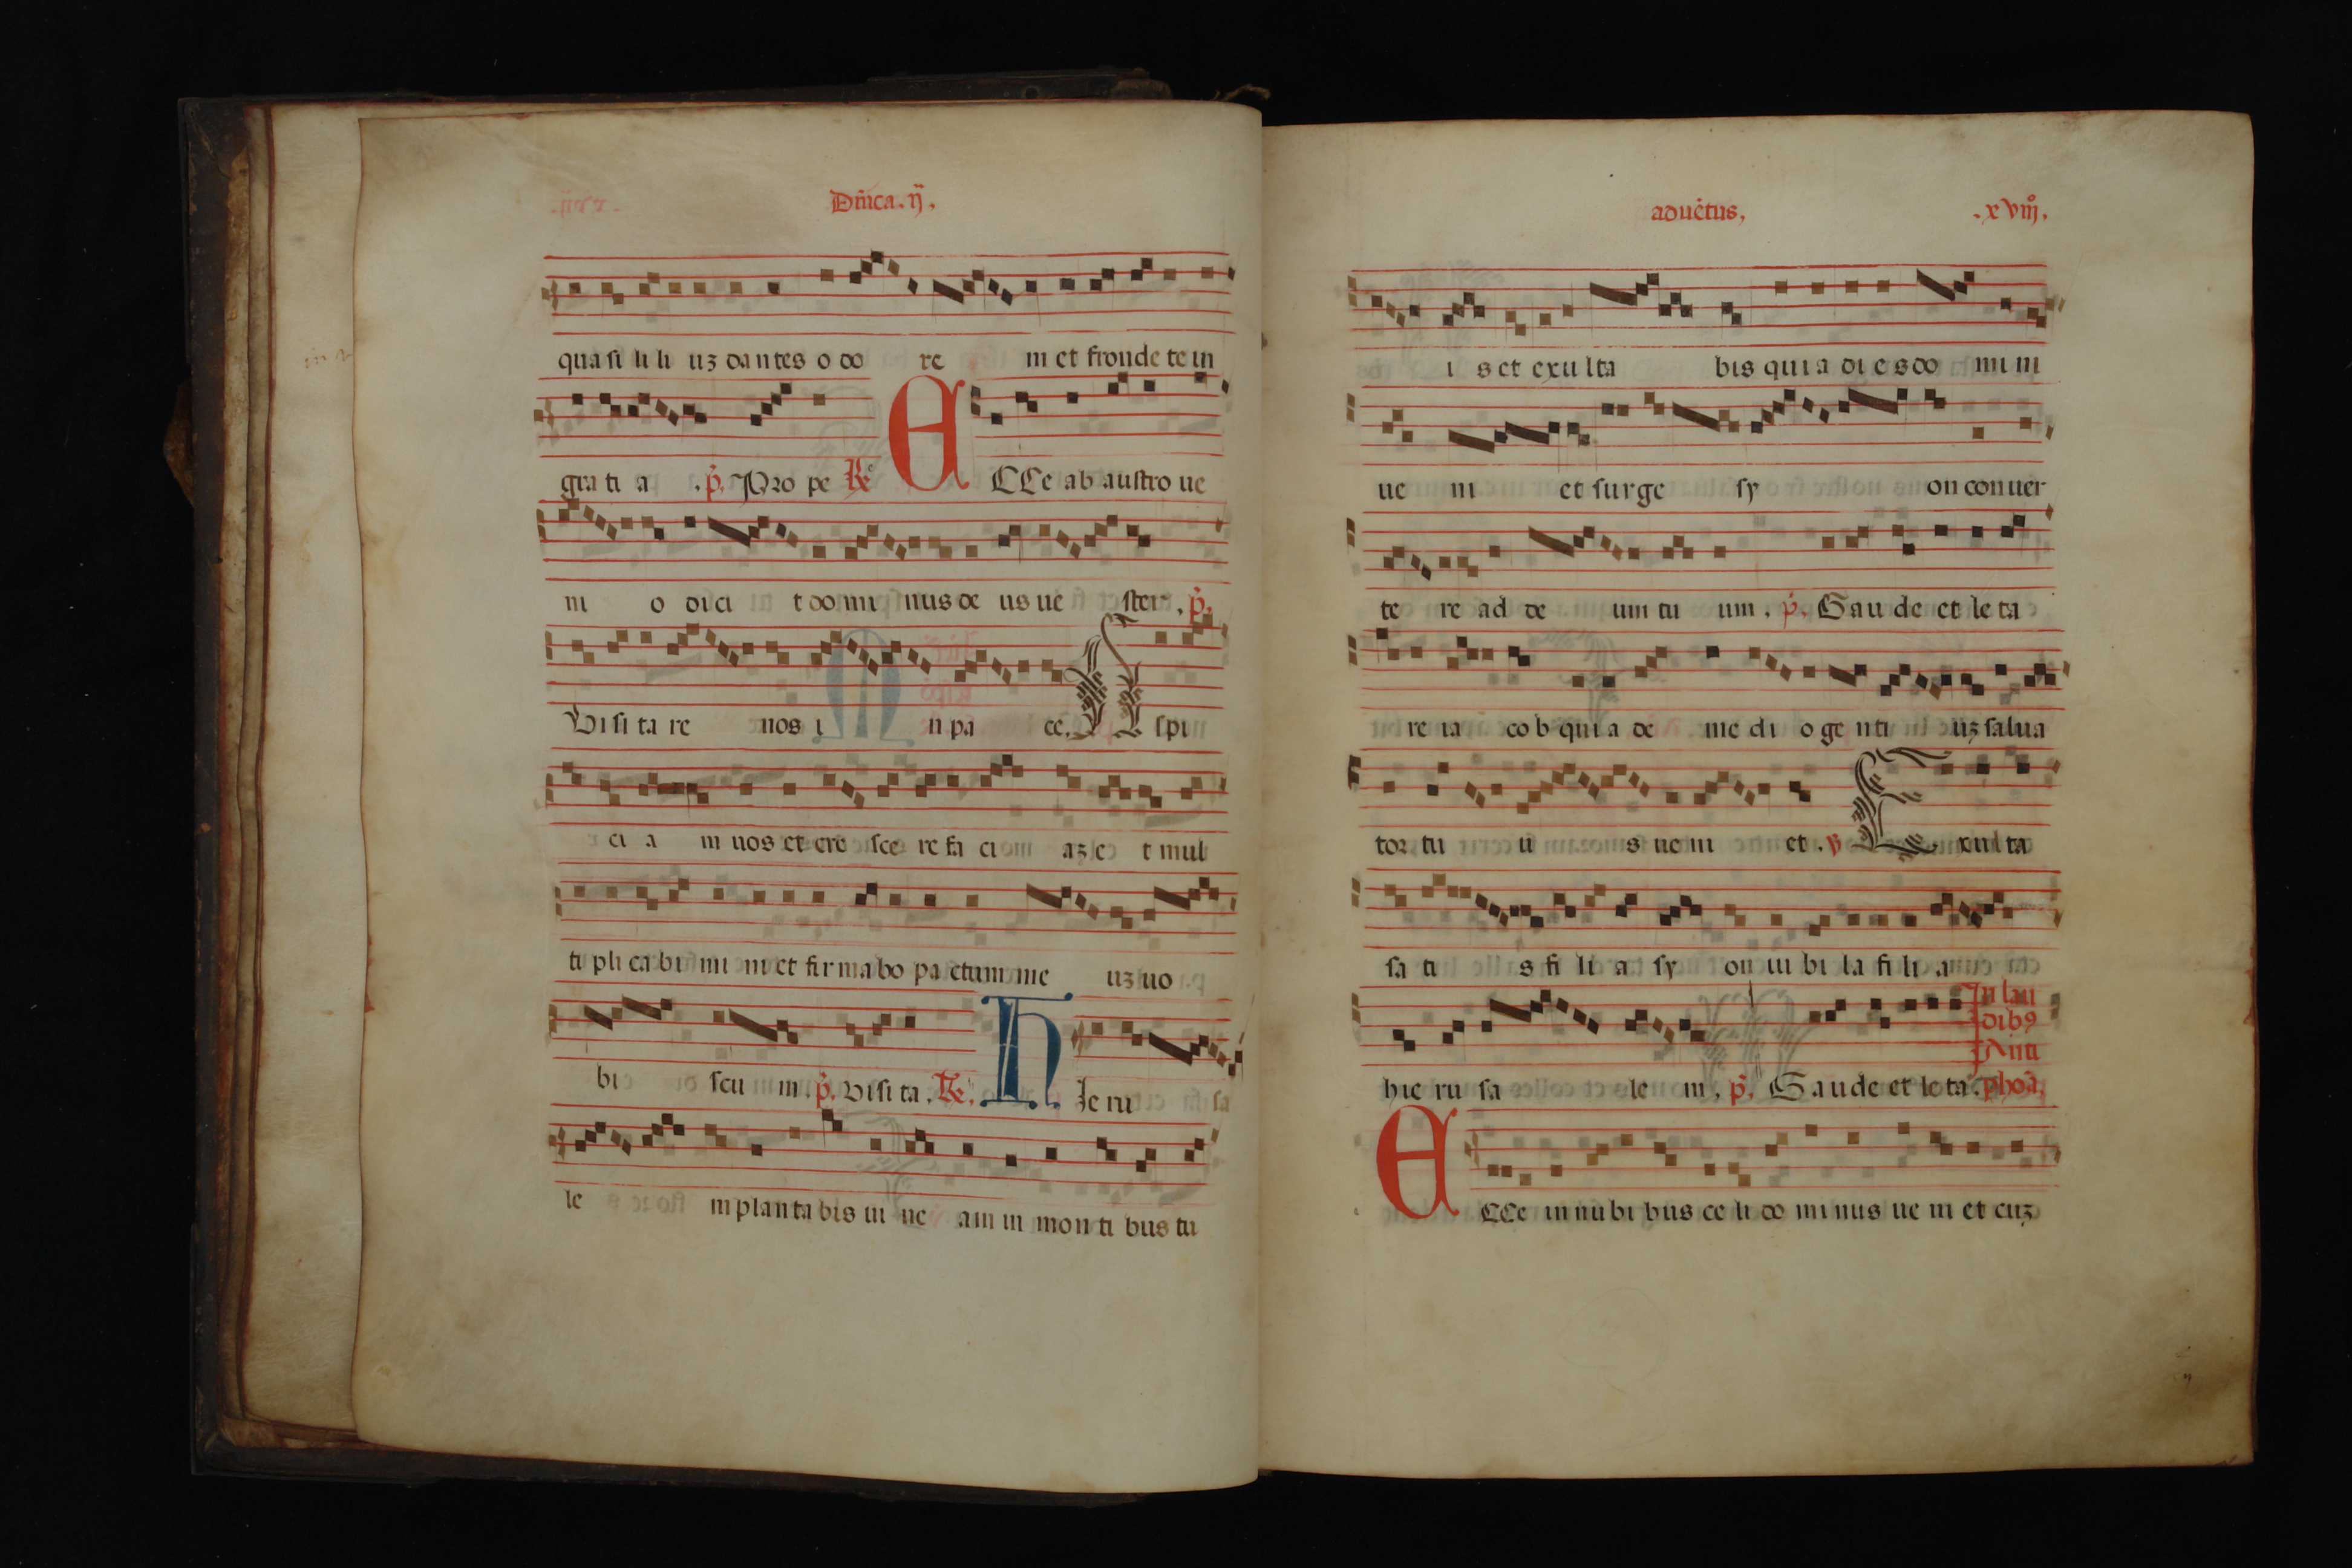 Dñica.ij.
qua si li li uz dantes o do re m et fronde te in
gra ti a .p. Pro pe R E CCe ab austro ue
ni o di ci t do mi nus de us ue ster . p.
Visi ta re nos i n pa ce. A spi
ci a m uos et cre sce re fa ci az e t mul
ti pli ca bi mi ni et fir ma bo pa ctum me uz uo
bi scu m. p. Visi ta. R. H Je ru sa
le m plan ta bis ui ne am in mon ti bus tu
aduẽtus, .xviij.
i s et exu lta bis qui a di e s do mi ni
ue ni et sur ge sy on con uer
te re ad de um tu um . p. Gau de et le ta
re ia co b qui a de me di o ge nti uz salua
tor tu u s ue ni et . v E xul ta
sa ti s fi li a sy on iu bi la fi li a
In lau
dib9
hie ru sa le m, p. Gau de et le ta. Anti
phoã,
E CCe in nu bi bus ce li do mi nus ue ni et cuz